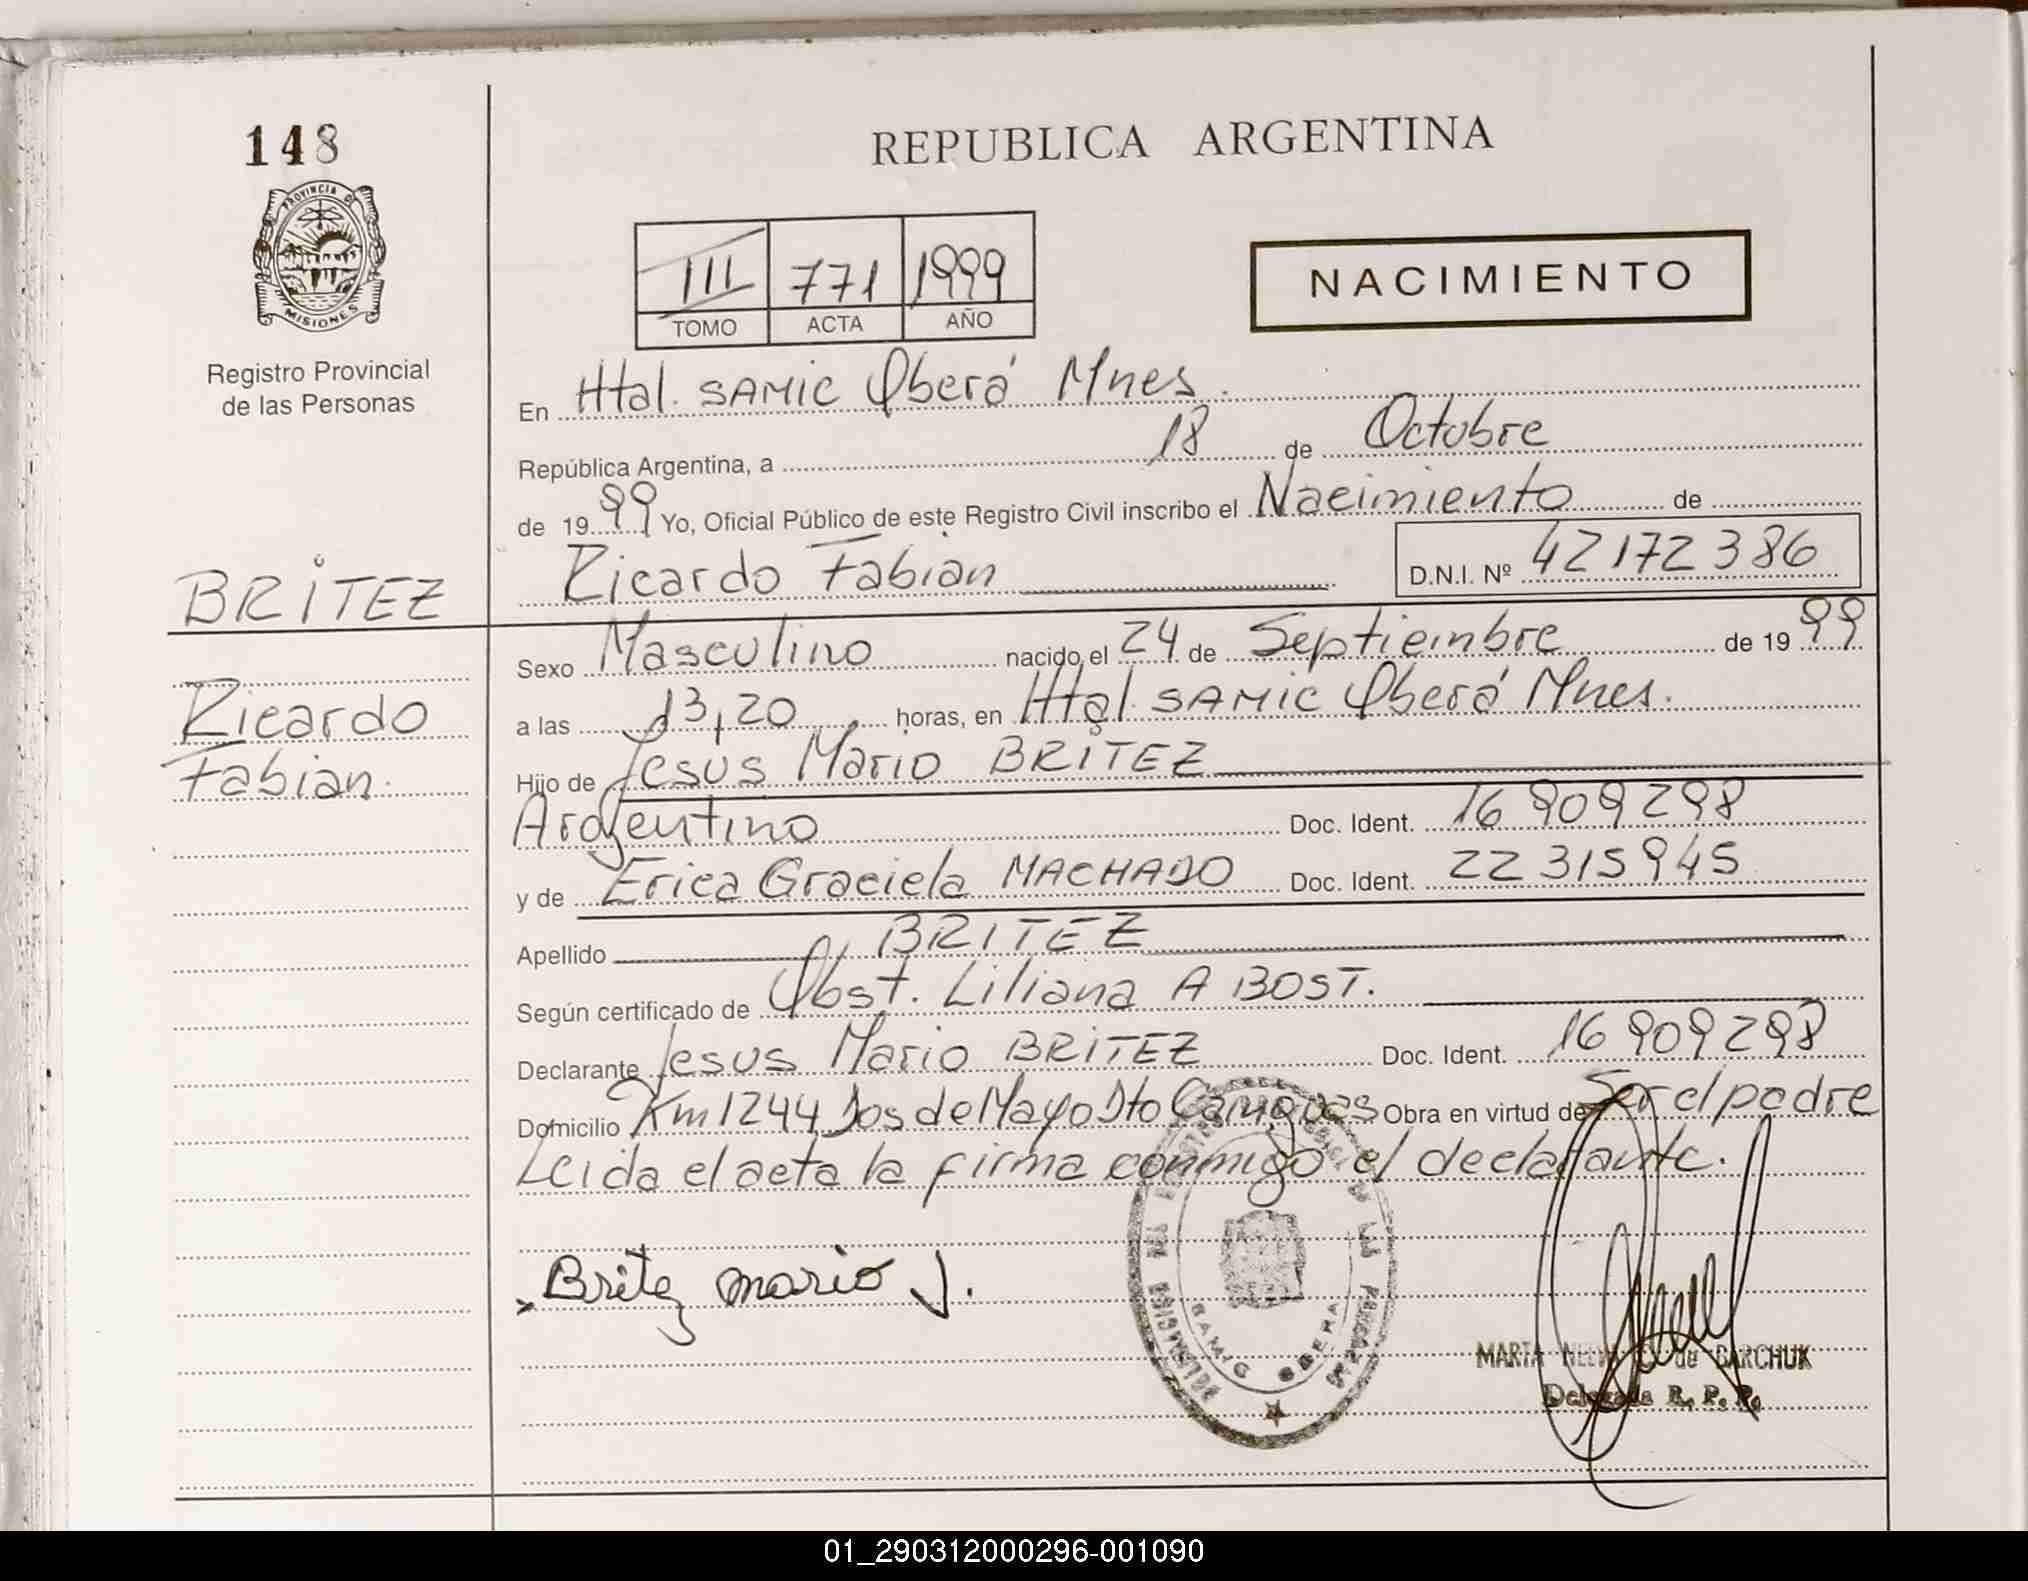 148
PROVINCIA D
MISIONES
Registro Provincial
de las Personas
REPUBLICA ARGENTINA
III 771 1999
TOMO ACTA AÑO
NACIMIENTO
En Htal. SAMIC Oberá Mnes.
República Argentina, a 18 de Octubre
de 1999 Yo, Oficial Público de este Registro Civil inscribo el Nacimiento de
Ricardo Fabian D.N.I. Nº 42172386
BRITEZ
Ricardo
Fabian.
Sexo Masculino nacido el 24 de Septiembre de 1999
a las 13,20 horas, en Htal. SAMIC Oberá Mnes.
Hijo de Jesus Mario BRITEZ
Argentino Doc. Ident. 16 909 298
y de Erica Graciela MACHADO Doc. Ident. 22 315 945
Apellido BRITEZ
Según certificado de Obst. Liliana A BOST.
Declarante Jesus Mario BRITEZ Doc. Ident. 16 909 298
Domicilio Km 1244 Dos de Mayo Dto Cainguas Obra en virtud de Ser el padre
Leida el acta la firma conmigo el declarante.
Britez mario J.
OBERA
MARTA de BARCHUK
Delegada R. P. P.
01_290312000296-001090